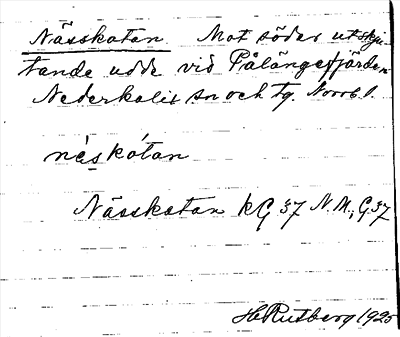 Nässkatan Mot söder utskju-
tande udde vid Pålängefjärden
Nederkalix sn och tg. Norrb. l.
néskótan
Nässkatan kG 37 N.M., G 37
H Rutberg 1925